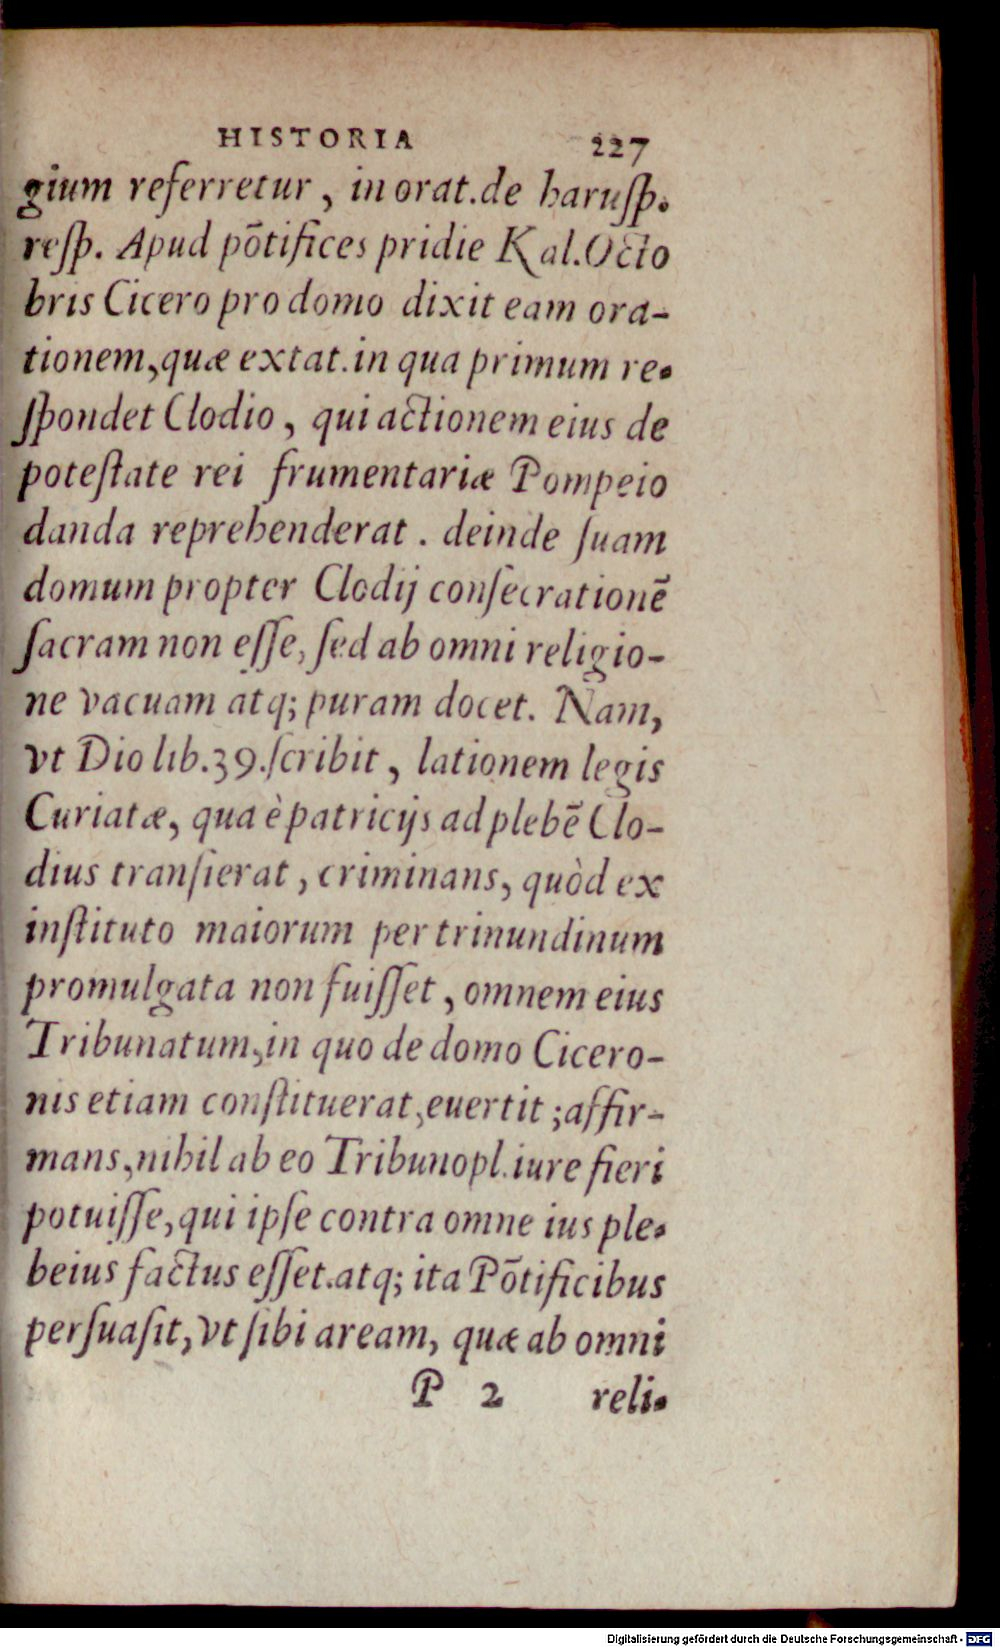 HISTORIA 227
gium referretur, in orat. de haruſp.
reſp. Apud põtifices pridie Kal. Octo
bris Cicero pro domo dixit eam ora-
tionem, quæ extat. in qua primum re-
ſpondet Clodio, qui actionem eius de
poteſtate rei frumentariæ Pompeio
danda reprehenderat. deinde ſuam
domum propter Clodij conſecrationẽ
ſacram non eſſe, ſed ab omni religio-
ne vacuam atq; puram docet. Nam,
vt Dio lib. 39. ſcribit, lationem legis
Curiatæ, qua è patricijs ad plebẽ Clo-
dius tranſierat, criminans, quòd ex
inſtituto maiorum per trinundinum
promulgata non fuiſſet, omnem eius
Tribunatum, in quo de domo Cicero-
nis etiam conſtituerat, euertit; affir-
mans, nihil ab eo Tribuno pl. iure fieri
potuiſſe, qui ipſe contra omne ius ple-
beius factus eſſet. atq; ita Põtificibus
perſuaſit, vt ſibi aream, quæ ab omni
P 2 reli-
Digitalisierung gefördert durch die Deutsche Forschungsgemeinschaft - DFG